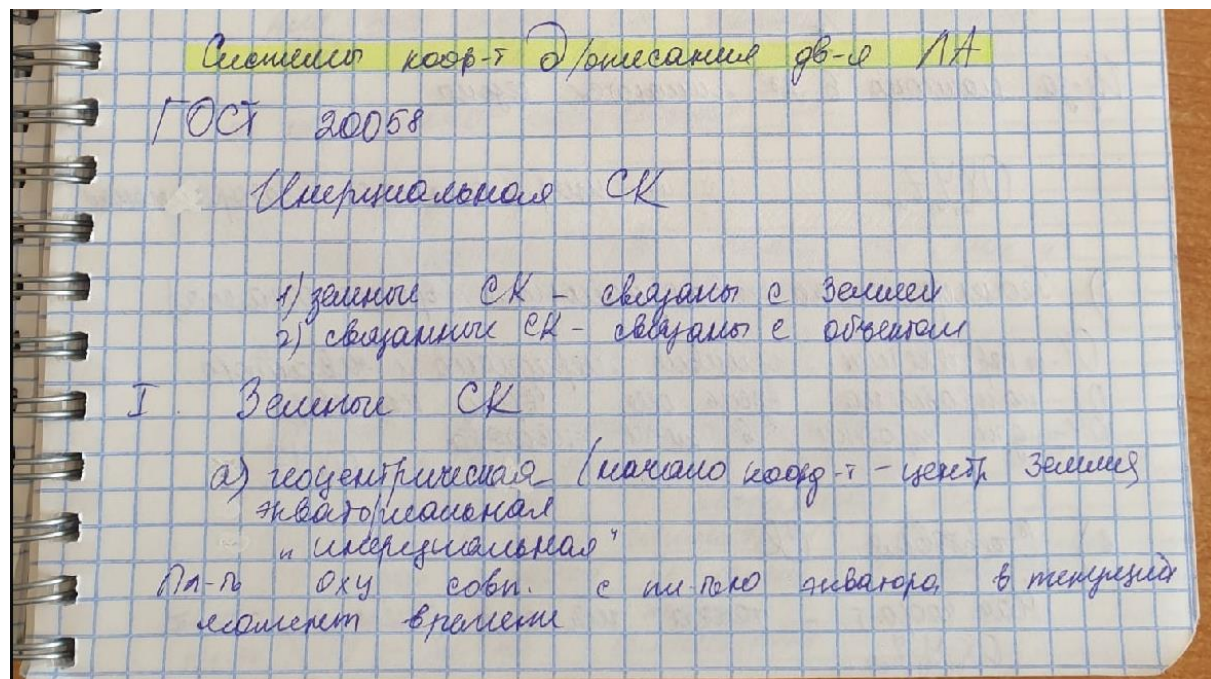 Системы коор-т д/описания дв-я ЛА
ГОСТ 20058
Инерциальная СК
1) земные СК - связаны с Землей
2) связанные СК - связаны с объектом
I. Земные СК
а) геоцентрическая (начало коорд-т - центр Земли)
экваториальная
"инерциальная"
Пл-ть OXY совп. с пл-тью экватора в текущий
момент времени